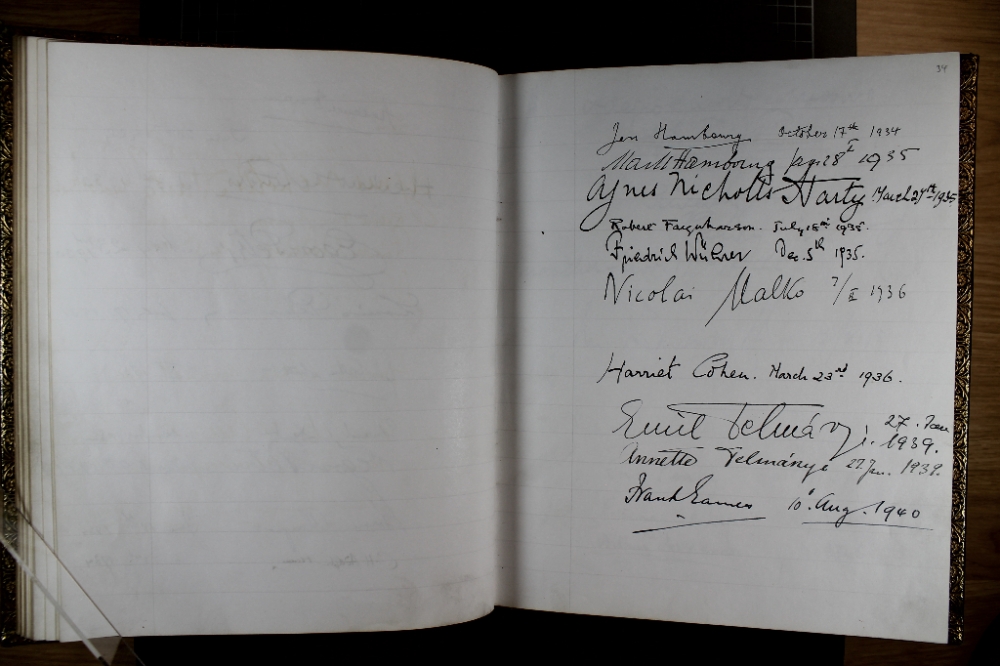 34
Jan Hambourg October 17th 1934
Mark Hambourg Jan 28th 1935
Agnes Nicholls Harty March 27th 1935
Robert Farquharson. July 18th 1935.
Friedrich Wührer Dec. 5th 1935.
Nicolai Malko 7/II 1936
Harriet Cohen. March 23rd 1936.
Emil Telmányi. 27. Jan
1939.
Annette Telmányi 27 Jan. 1939.
Frank Eames 10 Aug. 1940